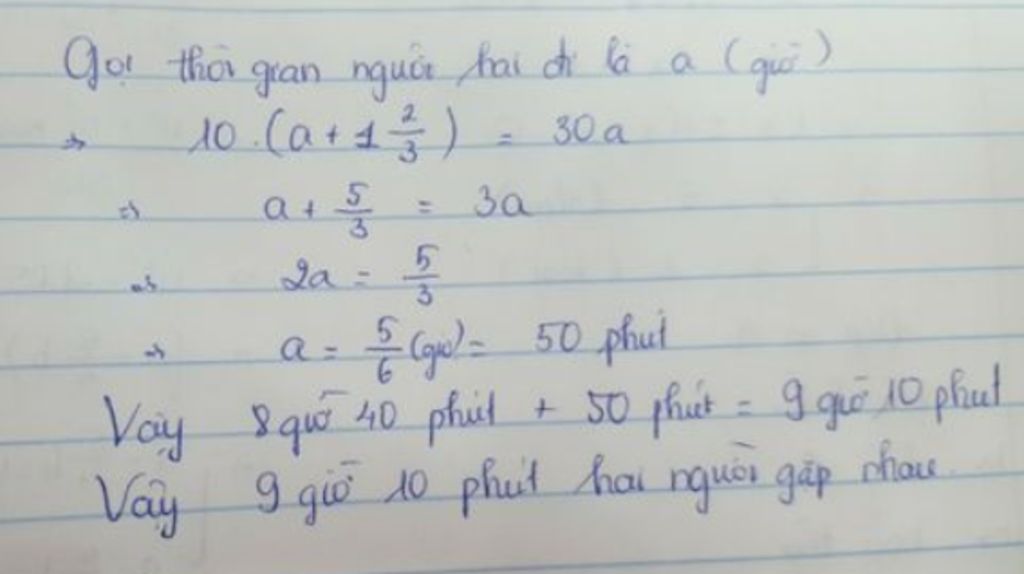 Gọi thời gian người hai đi là a (giờ)
=> 10.(a + 1 2/3) = 30a
=> a + 5/3 = 3a
=> 2a = 5/3
=> a = 5/6 (giờ) = 50 phút
Vậy 8 giờ 40 phút + 50 phút = 9 giờ 10 phút
Vậy 9 giờ 10 phút hai người gặp nhau.